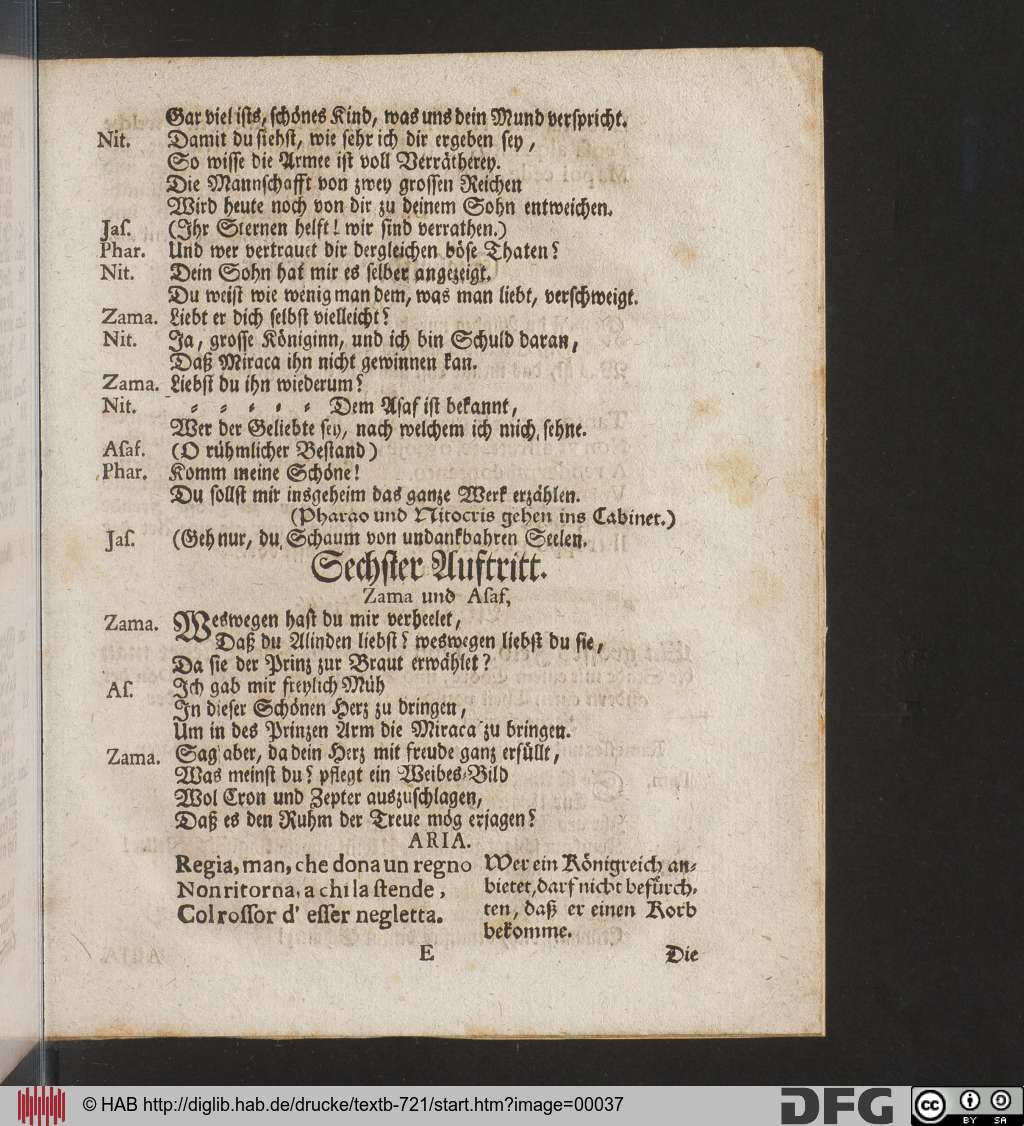 Gar viel ists, schönes Kind, was uns dein Mund verspricht.
Nit. Damit du siehst, wie sehr ich dir ergeben sey,
So wisse die Armee ist voll Verrätherey.
Die Mannschafft von zwey grossen Reichen
Wird heute noch von dir zu deinem Sohn entweichen.
Jas. (Ihr Sternen helft! wir sind verrathen.)
Phar. Und wer vertrauet dir dergleichen böse Thaten?
Nit. Dein Sohn hat mir es selber angezeigt.
Du weist wie wenig man dem, was man liebt, verschweigt.
Zama. Liebt er dich selbst vielleicht?
Nit. Ja, grosse Königinn, und ich bin Schuld daran,
Daß Miraca ihn nicht gewinnen kan.
Zama. Liebst du ihn wiederum?
Nit. = = = = = Dem Asaf ist bekannt,
Wer der Geliebte sey, nach welchem ich mich sehne.
Asaf. (O rühmlicher Bestand)
Phar. Komm meine Schöne!
Du sollst mir insgeheim das ganze Werk erzählen.
(Pharao und Nitocris gehen ins Cabinet.)
Jas. (Geh nur, du Schaum von undankbahren Seelen.
Sechster Auftritt.
Zama und Asaf,
Zama. Weswegen hast du mir verheelet,
Daß du Alinden liebst? weswegen liebst du sie,
Da sie der Prinz zur Braut erwählet?
As. Ich gab mir freylich Müh
In dieser Schönen Herz zu dringen,
Um in des Prinzen Arm die Miraca zu bringen.
Zama. Sag aber, da dein Herz mit freude ganz erfüllt,
Was meinst du? pflegt ein Weibes=Bild
Wol Cron und Zepter auszuschlagen,
Daß es den Ruhm der Treue mög erjagen?
ARIA.
Regia, man, che dona un regno
Non ritorna, a chi la stende,
Col rossor d' esser negletta.
Wer ein Königreich an=
bietet, darf nicht befürch=
ten, daß er einen Korb
bekomme.
E Die
© HAB http://diglib.hab.de/drucke/textb-721/start.htm?image=00037
DFG
cc BY SA